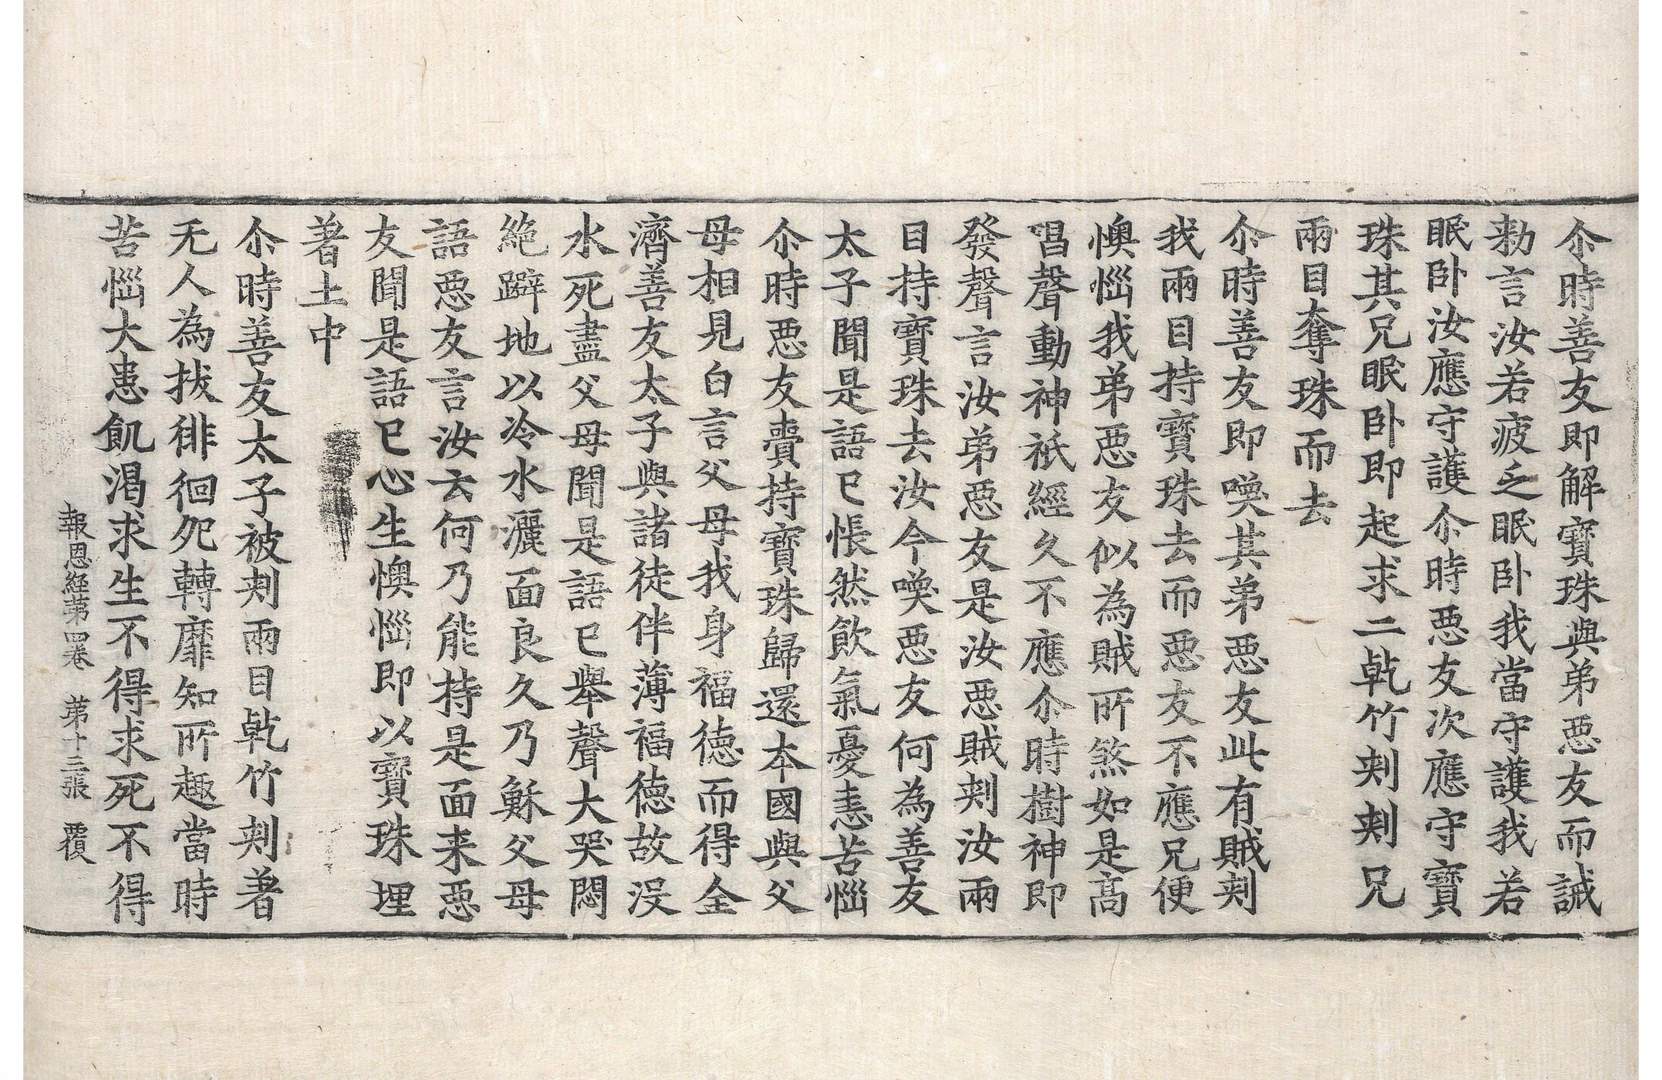 尒時善友即解寶珠與弟惡友而誡
勑言汝若疲乏眠卧我當守護我若
眠卧汝應守護尒時惡友次應守寶
珠其兄眠卧即起求二乹竹刾刾兄
兩目奪珠而去
尒時善友即喚其弟惡友此有賊刾
我兩目持寶珠去而惡友不應兄便
懊惱我弟惡友似為賊所煞如是高
唱聲動神祇經久不應尒時樹神即
發聲言汝弟惡友是汝惡賊刾汝兩
目持寶珠去汝今喚惡友何為善友
太子聞是語已悵然飲氣憂恚苦惱
尒時惡友賷持寶珠歸還本國與父
母相見白言父母我身福徳而得全
濟善友太子與諸徒伴薄福徳故没
水死盡父母聞是語已舉聲大哭悶
絶躃地以冷水灑面良久乃穌父母
語惡友言汝云何乃能持是面来惡
友聞是語已心生懊惱即以寶珠埋
著土中
尒時善友太子被刾兩目乹竹刾著
无人為拔徘徊夗轉靡知所趣當時
苦惱大患飢渇求生不得求死不得
報恩經第四卷　第十三張　覆